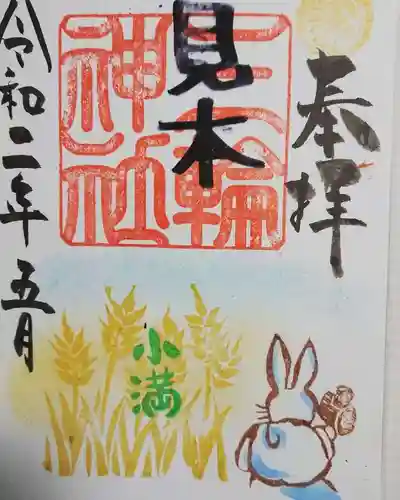 奉拝
見本
三輪神社
令和二年五月
小満